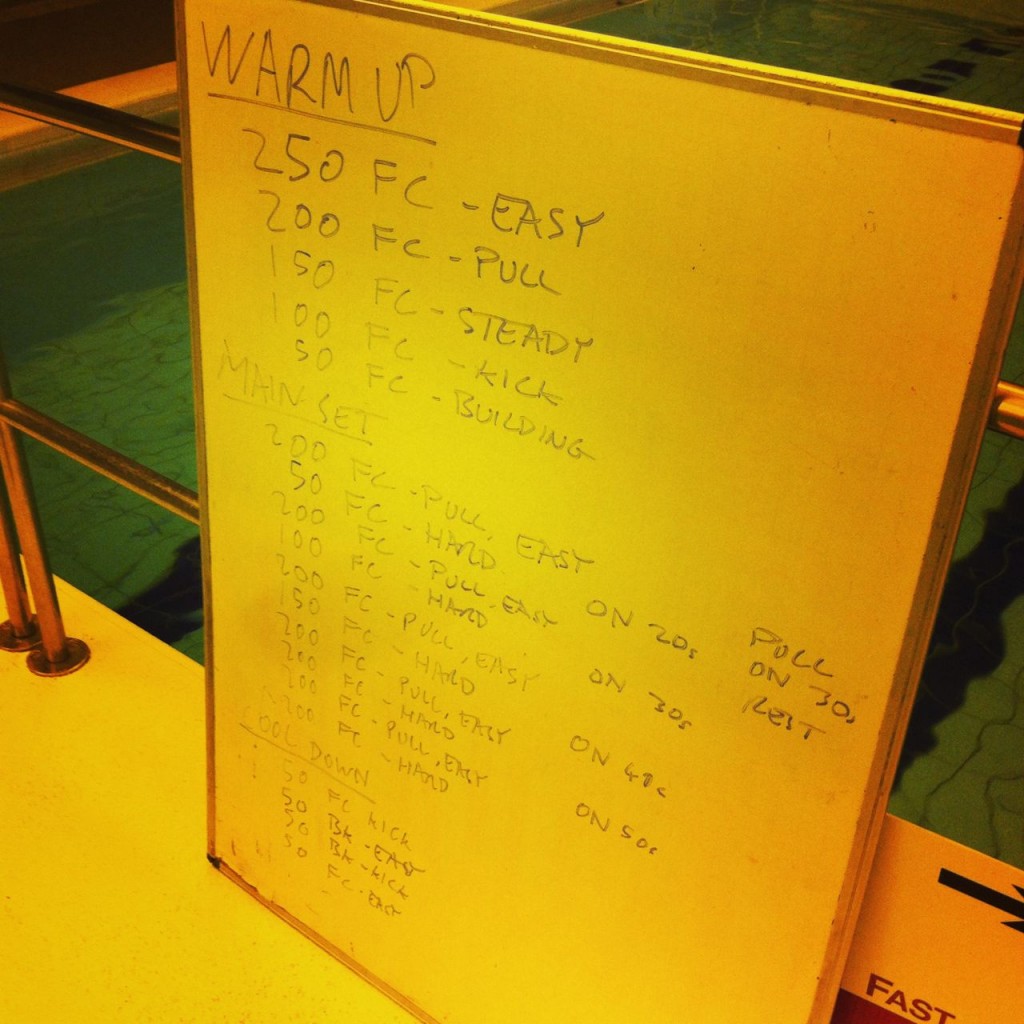 WARM UP
250 FC - EASY
200 FC - PULL
150 FC - STEADY
100 FC - KICK
50 FC - BUILDING
MAIN SET
200 FC - PULL, EASY
50 FC - HARD ON 20s
200 FC - PULL, EASY
100 FC - HARD ON 30s
200 FC - PULL, EASY
150 FC - HARD ON 40s
200 FC - PULL, EASY
200 FC - HARD ON 50s
200 FC - PULL, EASY
200 FC - HARD
PULL
ON 30s
REST
COOL DOWN
50 FC KICK
50 BK - EASY
50 BK - KICK
50 FC. EASY
FAST